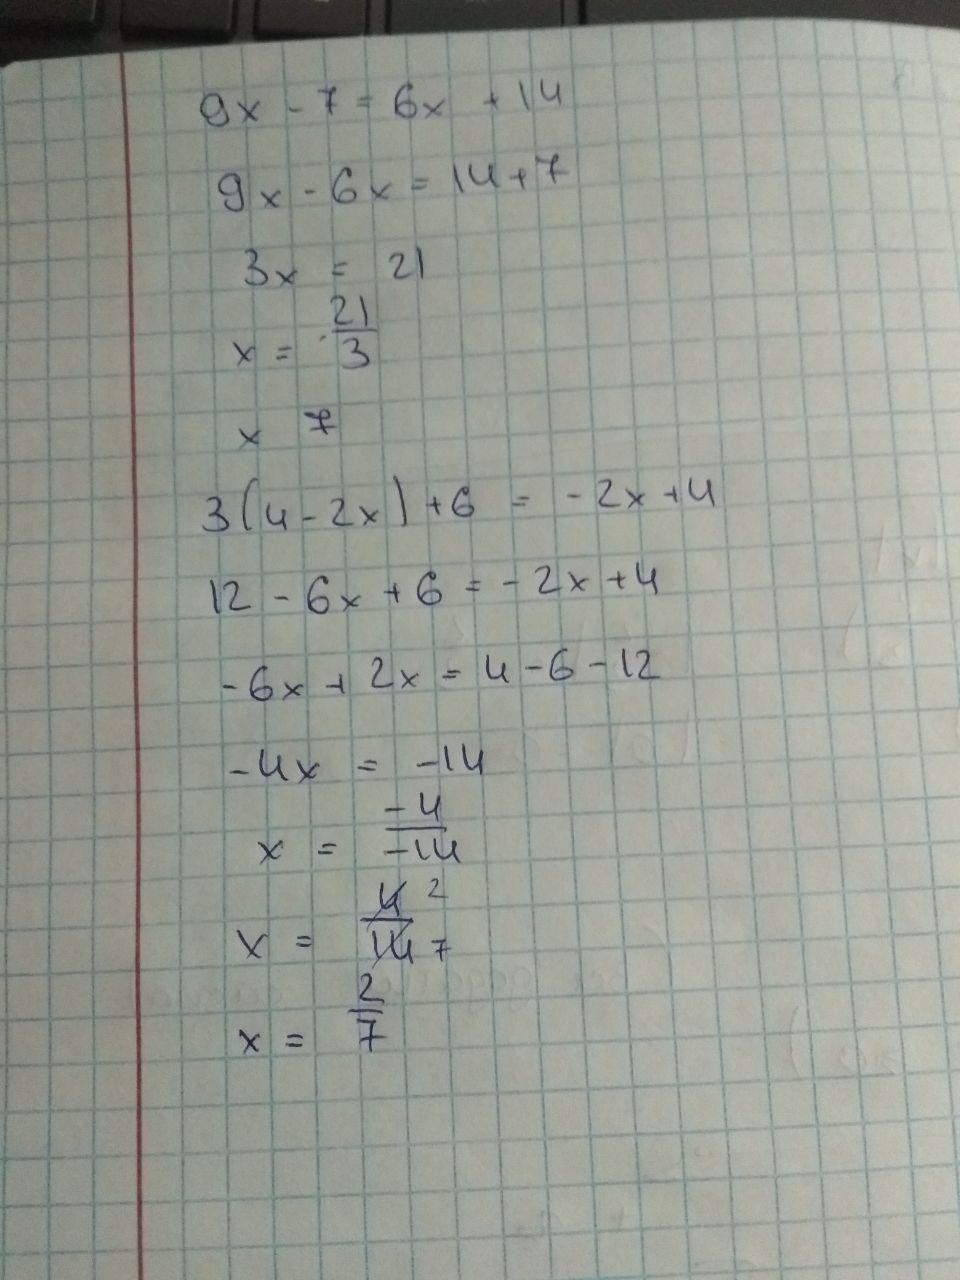 9x - 7 = 6x + 14
9x - 6x = 14 + 7
3x = 21
x = 21/3
x 7
3(4 - 2x) + 6 = -2x + 4
12 - 6x + 6 = -2x + 4
-6x + 2x = 4 - 6 - 12
-4x = -14
x = -4/-14
x = 4/14 2/7
x = 2/7